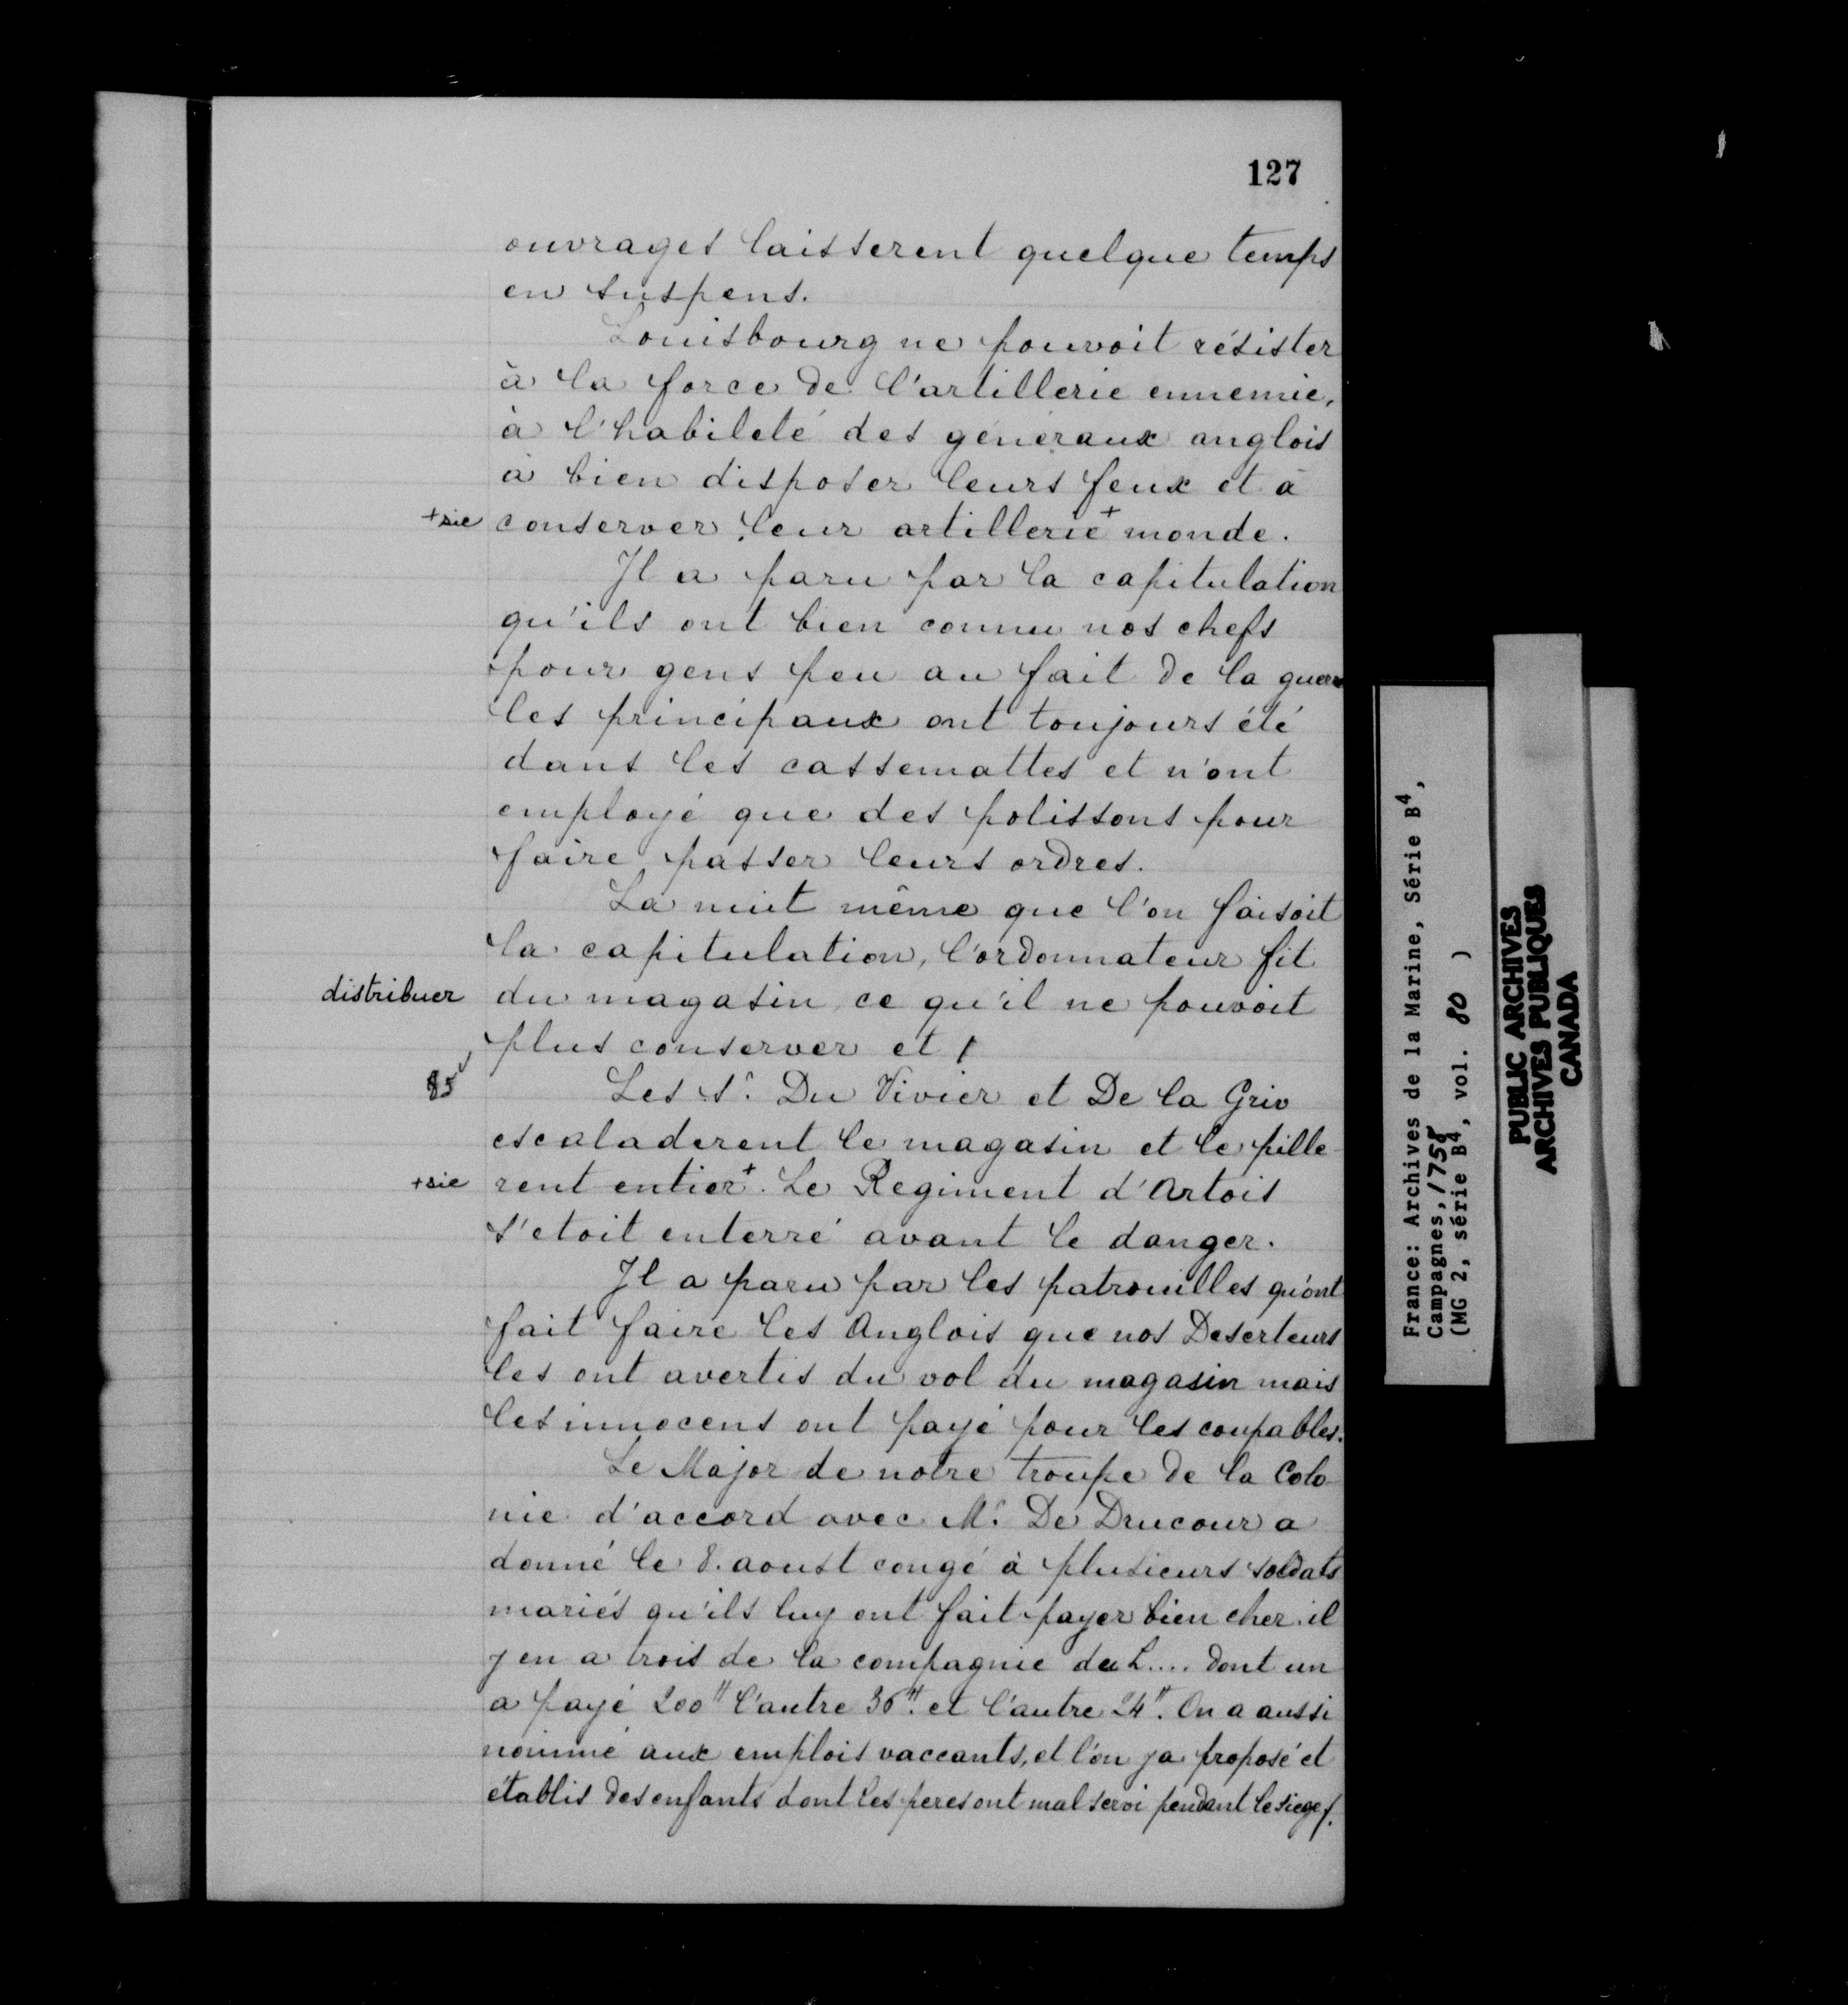 127
ouvrages laisserent quelque temps
en suspens.
Louisbourg ne pouvoit résister
à la force de l'artillerie ennemie,
à l'habileté des géneraux anglois
à bien disposer leurs feux et à
+sic conserver leur artillerie+ monde.
Il a paru par la capitulation
qu'ils ont bien connu nos chefs
pour gens peu au fait de la guerre
les principaux ont toujours été
dans les cassemattes et n'ont
employé que des polissons pour
faire passer leurs ordres.
La nuit même que l'on faisoit
la capitulation, l'ordonnateur fit
distribuer du magasin ce qu'il ne pouvoit
plus conserver et
85 Les Sr. Du Vivier et De la Griv
escaladerent le magasin et le pille
+sic rent entier+. Le Regiment d'Artois
s'etoit enterré avant le danger.
Il a paru par les patrouilles qu'ont
fait faire les Anglois que nos Deserteurs
les ont avertis du vol du magasin mais
les innocens ont payé pour les coupables.
Le Major de notre troupe de la Colo
nie d'accord avec Mr. De Drucour a
donné le 8. aoust congé à plusieurs soldats
mariés qu'ils luy ont fait payer bien cher. il
y en a trois de la compagnie de L.... dont un
a payé 200tt l'autre 36tt. et l'autre 24tt. On a aussi
nommé aux emplois vaccants, et l'on y a proposé et
établis des enfants dont les peres ont mal servi pendant le siege.
France: Archives de la Marine, Série B4,
Campagnes, 1758
(MG 2, série B4, vol. 80 )
PUBLIC ARCHIVES
ARCHIVES PUBLIQUES
CANADA